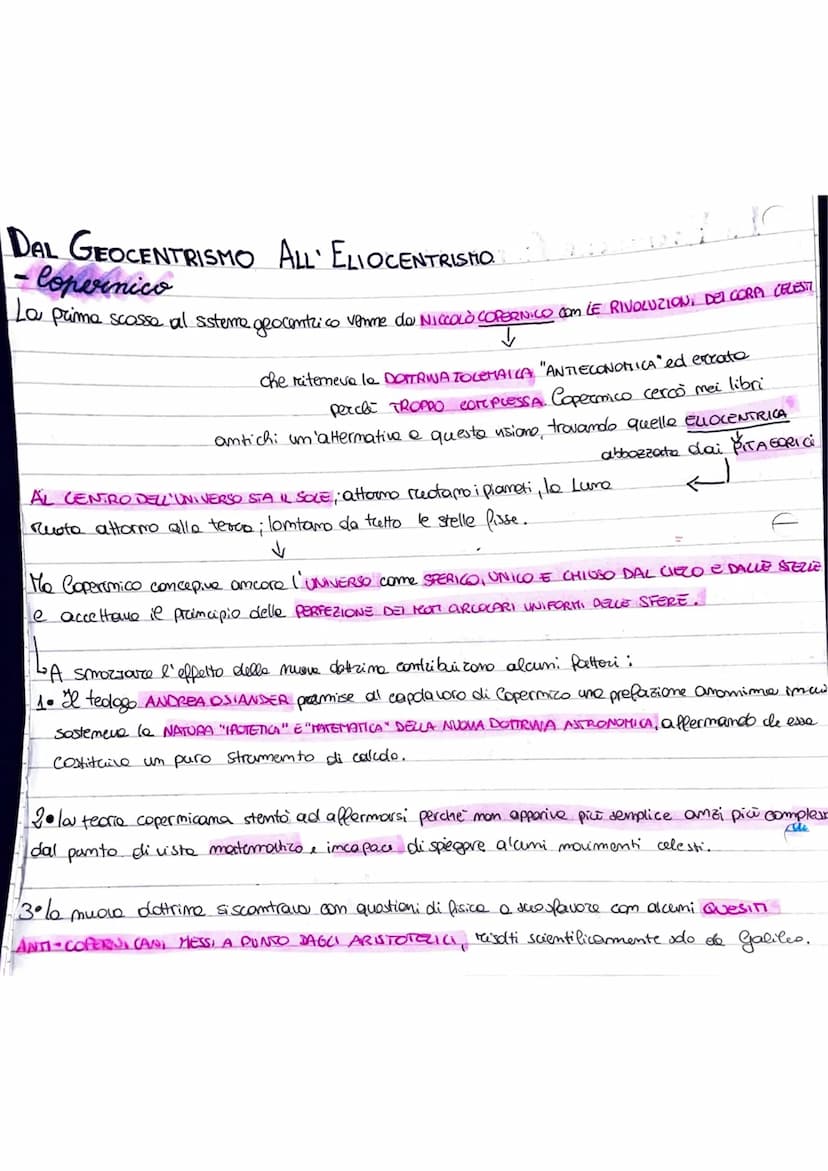 DAL GEOCENTRISMO ALL' ELIOCENTRISMO
- Copernico
La prima scossa al sistema geocentrico venne da NICCOLÒ COPERNICO con LE RIVOLUZIONI DEI CORPI CELESTI
che riteneva la DOTTRINA TOLEMAICA "ANTIECONOMICA" ed errata
perché TROPPO COMPLESSA. Copernico cercò nei libri
antichi un'alternativa a questa visione, trovando quella ELIOCENTRICA
abbozzata dai PITAGORICI
AL CENTRO DELL'UNIVERSO STA IL SOLE; attorno ruotano i pianeti, la Luna
ruota attorno alla terra; lontano da tutto le stelle fisse.
Ma Copernico concepiva ancora l'UNIVERSO come SFERICO, UNICO E CHIUSO DAL CIELO E DALLE STELLE
e accettava il principio della PERFEZIONE DEI MOTI CIRCOLARI UNIFORMI DELLE SFERE.
A smorzare l'effetto della nuova dottrina contribuirono alcuni fattori:
1• Il teologo ANDREA OSIANDER premise al capolavoro di Copernico una prefazione anonima in cui
sosteneva la NATURA "IPOTETICA" E "MATEMATICA" DELLA NUOVA DOTTRINA ASTRONOMICA, affermando che essa
costituiva un puro strumento di calcolo.
2• la teoria copernicana stentò ad affermarsi perché non appariva più semplice anzi più complessa
dal punto di vista matematico e incapace di spiegare alcuni movimenti celesti.
3• la nuova dottrina si scontrava con questioni di fisica a suo sfavore con alcuni QUESITI
ANTI-COPERNICANI MESSI A PUNTO DAGLI ARISTOTELICI, risolti scientificamente solo da Galileo.